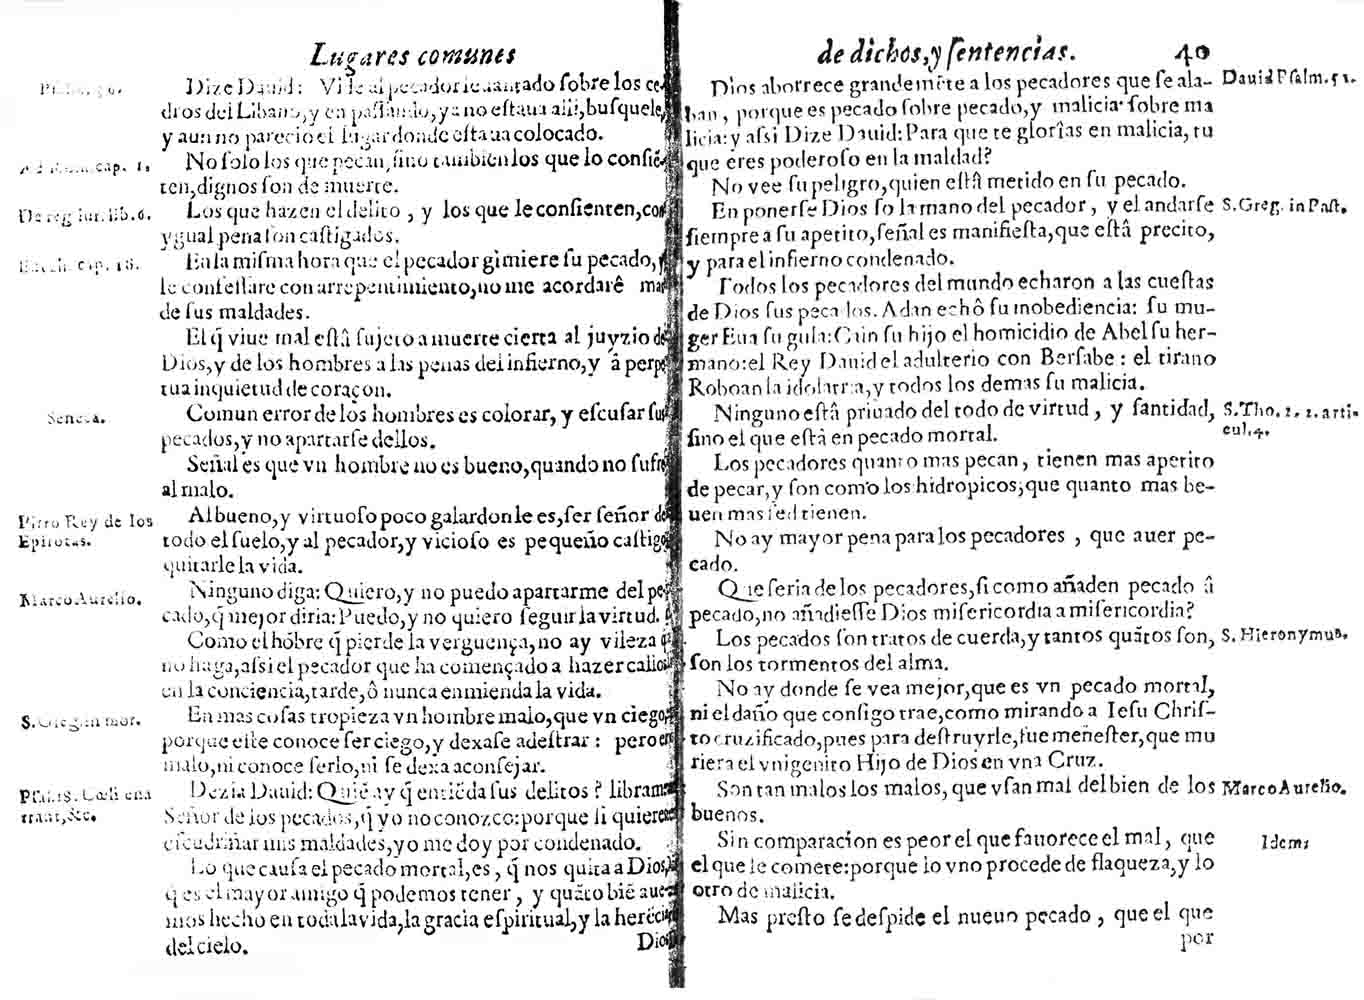 Lugares comunes
Dize Dauid: Vi se al pecador leuantado ſobre los ce
dros del Libano, y en paſſando, ya no eſtaua alli, buſquele,
y aun no parecio el lugar donde eſtaua colocado.
Ad Rom. cap. 1.
No ſolo los que pecan, ſino tambien los que lo conſiē-
ten, dignos ſon de muerte.
De reg iur. lib. 6.
Los que hazen el delito, y los que le conſienten, con
ygual pena ſon caſtigados.
Ezech. cap. 18.
En la miſma hora que el pecador gimiere ſu pecado,
le confeſſare con arrepentimiento, no me acordarê mas
de ſus maldades.
El q̄ viue mal eſtâ ſujeto a muerte cierta al juyzio de
Dios, y de los hombres a las penas del infierno, y â perpe
tua inquietud de coraçon.
Seneca.
Comun error de los hombres es colorar, y eſcuſar ſus
pecados, y no apartarſe dellos.
Señal es que vn hombre no es bueno, quando no ſufre
al malo.
Pirro Rey de los
Epirotas.
Al bueno, y virtuoſo poco galardon le es, ſer ſeñor de
todo el ſuelo, y al pecador, y vicioſo es pequeño caſtigo
quitarle la vida.
Marco Aurelio.
Ninguno diga: Quiero, y no puedo apartarme del pe-
cado, q̄ mejor diria: Puedo, y no quiero ſeguir la virtud.
Como el hōbre q̄ pierde la verguença, no ay vileza q̄
no haga, aſsi el pecador que ha començado a hazer callos
en la conciencia, tarde, ô nunca enmienda la vida.
S. Greg. in mor.
En mas coſas tropieza vn hombre malo, que vn ciego:
porque eſte conoce ſer ciego, y dexaſe adeſtrar: pero el
malo, ni conoce ſerlo, ni ſe dexa aconſejar.
Pſal. 18. Cœli ena
rrant, &c.
Dezia Dauid: Quiē ay q̄ entiēda ſus delitos? librame
Señor de los pecados, q̄ yo no conozco: porque ſi quieres
eſcudriñar mis maldades, yo me doy por condenado.
Lo que cauſa el pecado mortal, es, q̄ nos quita a Dios,
q̄ es el mayor amigo q̄ podemos tener, y quāto biē aue-
mos hecho en toda la vida, la gracia eſpiritual, y la herēcia
del cielo.
Dios
de dichos, y ſentencias. 40
Dios aborrece grandemēte a los pecadores que ſe ala-
ban, porque es pecado ſobre pecado, y malicia ſobre ma
licia: y aſsi Dize Dauid: Para que te glorîas en malicia, tu
que eres poderoſo en la maldad?
Dauid Pſalm. 51.
No vee ſu peligro, quien eſtâ metido en ſu pecado.
En ponerſe Dios ſo la mano del pecador, y el andarſe
ſiempre a ſu apetito, ſeñal es manifieſta, que eſtâ precito,
y para el infierno condenado.
S. Greg. in Paſt.
Todos los pecadores del mundo echaron a las cueſtas
de Dios ſus pecados. Adan echô ſu inobediencia: ſu mu-
ger Eua ſu gula: Cain ſu hijo el homicidio de Abel ſu her-
mano: el Rey Dauid el adulterio con Berſabe: el tirano
Roboan la idolatria, y todos los demas ſu malicia.
Ninguno eſtâ priuado del todo de virtud, y ſantidad,
ſino el que eſtâ en pecado mortal.
S. Tho. 1. 2. arti-
cul. 4.
Los pecadores quanto mas pecan, tienen mas apetito
de pecar, y ſon como los hidropicos, que quanto mas be-
uen mas ſed tienen.
No ay mayor pena para los pecadores, que auer pe-
cado.
Que ſeria de los pecadores, ſi como añaden pecado â
pecado, no añadieſſe Dios miſericordia a miſericordia?
Los pecados ſon tratos de cuerda, y tantos quātos ſon,
ſon los tormentos del alma.
S. Hieronymus.
No ay donde ſe vea mejor, que es vn pecado mortal,
ni el daño que conſigo trae, como mirando a Ieſu Chriſ-
to cruzificado, pues para deſtruyrle, fue meneſter, que mu
riera el vnigenito Hijo de Dios en vna Cruz.
Son tan malos los malos, que vſan mal del bien de los
buenos.
Marco Aurelio.
Sin comparacion es peor el que fauorece el mal, que
el que le comete: porque lo vno procede de flaqueza, y lo
otro de malicia.
Idem;
Mas preſto ſe deſpide el nueuo pecado, que el que
por